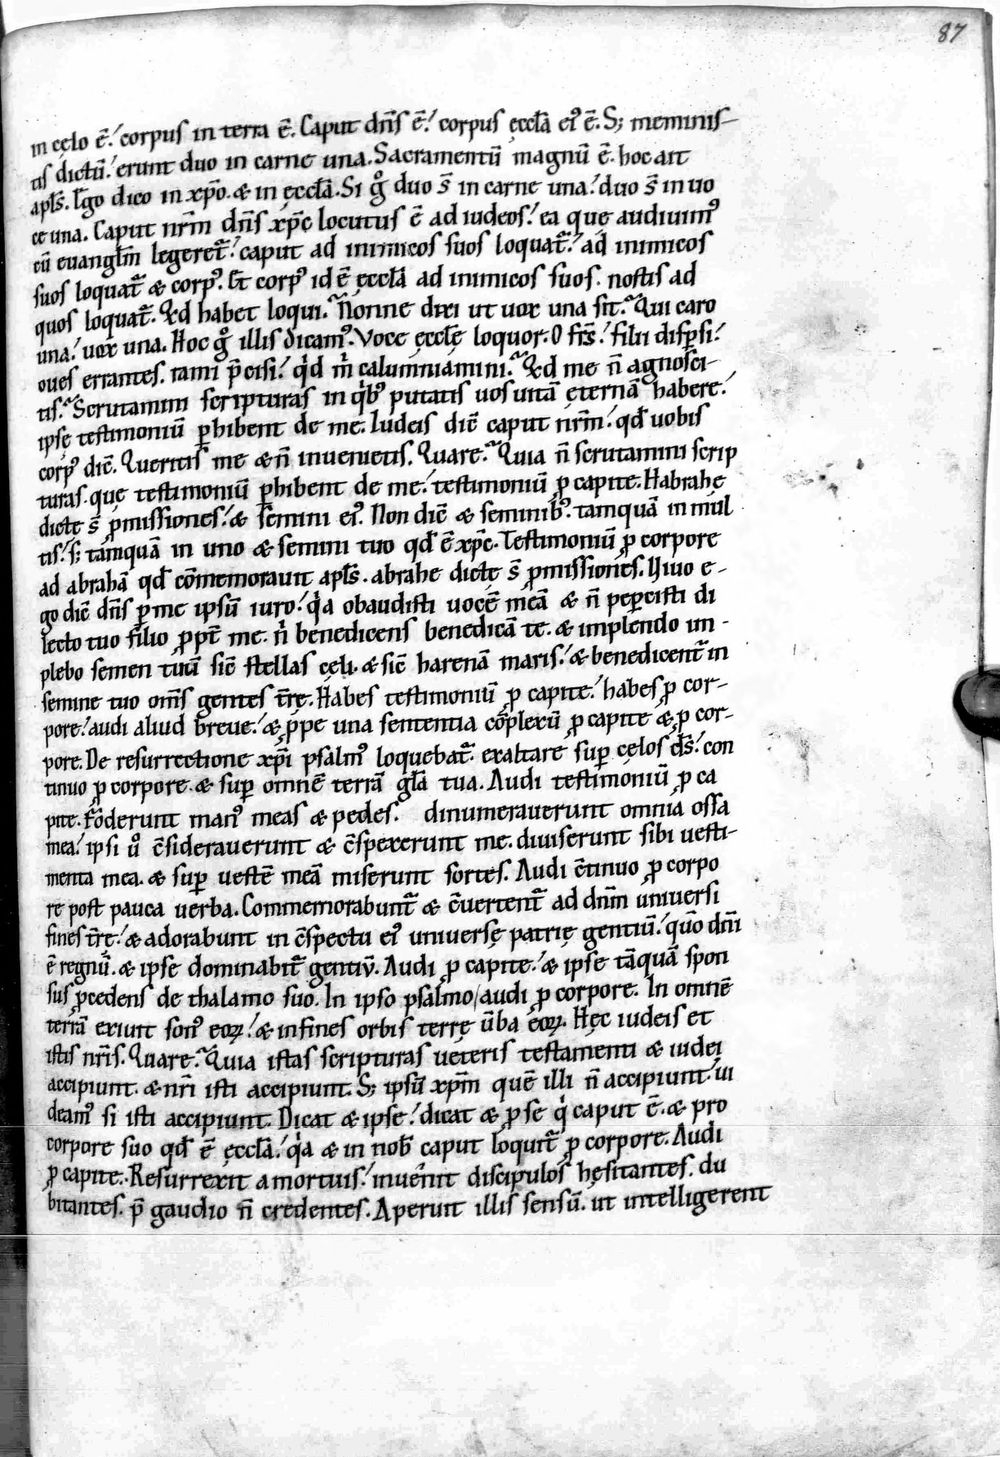 87
in cęlo ē. corpus in terra ē. Caput dn̄s ē. corpus ęccła ei᾽ ē. S; meminis-
tis dictū. erunt duo in carne una. Sacramentū magnū ē. hoc ait
apłs. Ego dico in xp̄o. & in ęccła. Si gͦ duo s̄ in carne una. duo s̄ in uo
ce una. Caput nr̄m dn̄s xp̄c locutus ē ad iudeos. ea quę audiuim᾽
cū euangłm legeret᾽. caput ad inimicos suos loquat᾽. ad inimicos
suos loquat᾽ & corp᾽. Et corp᾽ id ē ęccła ad inimicos suos. nostis ad
quos loquat᾽. Qd habet loqui. Nonne dixi ut uox una sit. Qui caro
una. uox una. Hoc gͦ illis dicam᾽. Voce ęcclę loquor. O frs̄. filii disꝑsi.
oues errantes. rami p̄cisi. qͥd m̊ calumniamini. Qd me n̄ agnosci-
tis. Scrutamini scripturas in qͥb᾽ putatis uos uitā ęternā habere.
ipsę testimoniū ꝑhibent de me. Iudeis dic̄ caput nr̄m. qđ uobis
corp᾽ dic̄. Queritis me & n̄ inuenietis. Quare. Quia n̄ scrutamini scrip
turas. quę testimoniū ꝑhibent de me. testimoniū ꝓ capite. Habrahę
dictę s̄ ꝓmissiones. & semini ei᾽. Non dic̄ & seminib᾽. tamquā in mul
tis. s; tamquā in uno & semini tuo qđ ē xp̄c. Testimoniū ꝓ corpore
ad abrahā qđ cōmemorauit apłs. abrahe dictę s̄ ꝓmissiones. Uiuo e-
go dic̄ dn̄s ꝑ me ipsū iuro. qͥa obaudisti uocē meā & n̄ peꝑcisti di
lecto tuo filio ꝓpt̄ me. nͥ benedicens benedicā te. & implendo im-
plebo semen tuū sic̄ stellas cęli. & sic̄ harenā maris. & benedicent᾽ in
semine tuo om̄s gentes tr̄ę. Habes testimoniū ꝓ capite. habes ꝓ cor-
pore. audi aliud breue. & ꝓpe una sententia cōplexū ꝓ capite & ꝓ cor-
pore. De resurrectione xp̄i psalm᾽ loquebat᾽. exaltare suꝑ cęlos ds̄. con
tinuo ꝓ corpore. & suꝑ omnē terrā gła tua. Audi testimoniū ꝓ ca
pite. Foderunt man᾽ meas & pedes. dinumerauerunt omnia ossa
mea. ipsi uͦ c̄siderauerunt & c̄spexerunt me. diuiserunt sibi uesti-
menta mea. & suꝑ uestē meā miserunt sortes. Audi c̄tinuo ꝓ corpo
re post pauca uerba. Commemorabunt᾽ & c̄uertent᾽ ad dnm̄ uniuersi
fines tr̄ę. & adorabunt in c̄spectu ei᾽ uniuersę patrię gentiū. quͦo dn̄i
ē regnū. & ipse dominabit᾽ gentiū. Audi ꝓ capite. & ipse tāquā spon
sus ꝓcedens de thalamo suo. In ipso psalmo audi ꝓ corpore. In omnē
terrā exiuit son᾽ eoꝝ. & in fines orbis terrę ūba eoꝝ. Hęc iudeis et
istis nr̄is. Quare. Quia istas scripturas ueteris testamenti & iudei
accipiunt. & nr̄i isti accipiunt. S; ipsū xpm̄ quē illi n̄ accipiunt. ui
deam᾽ si isti accipiunt. Dicat & ipse. dicat & ꝓ se qͥ caput ē. & pro
corpore suo qđ ē ęccła. qͥa & in nob̄ caput loquit᾽ ꝓ corpore. Audi
ꝓ capite. Resurrexit a mortuis. inuenit discipulos hęsitantes. du
bitantes. p̄ gaudio n̄ credentes. Aperuit illis sensū. ut intelligerent